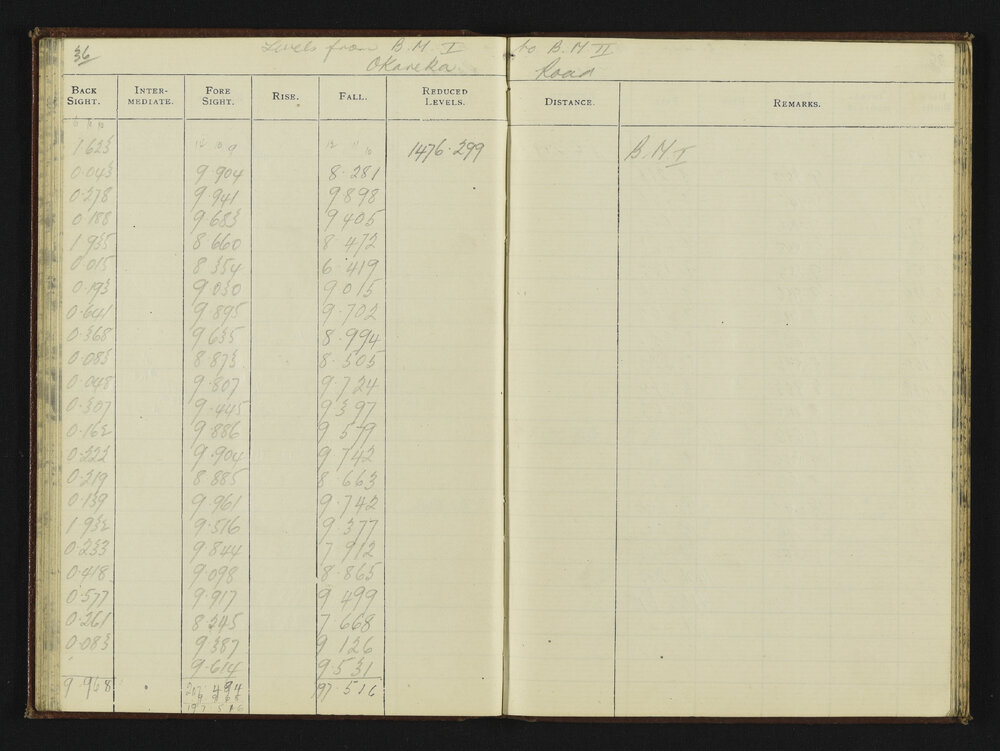 36 Levels from B.M. I to B.M II
Okareka Road
BACK SIGHT. INTER-MEDIATE. FORE SIGHT. RISE. FALL. REDUCED LEVELS. DISTANCE. REMARKS.
1.623 12 10 9 12 11 10 1476.299 B.M I
0.043 9.904 8.281
0.278 9.941 9.898
0.188 9.683 9.405
1.935 8.660 8.472
0.015 8.354 6.419
0.193 9.030 9.015
0.641 9.895 9.702
0.368 9.635 8.994
0.083 8.873 8.505
0.048 9.807 9.724
0.307 9.445 9.397
0.162 9.886 9.579
0.222 9.904 9.742
0.219 8.885 8.663
0.139 9.961 9.742
1.932 9.516 9.377
0.233 9.844 7.912
0.418 9.098 8.865
0.577 9.917 9.499
0.261 8.245 7.668
0.083 9.387 9.126
9.614 9.531
9.968 207.484 197.516
9.968
197.516